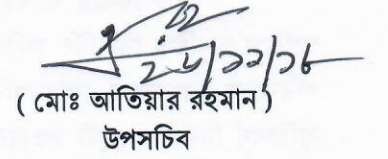 ২৬/১১/১৮
( মোঃ আতিয়ার রহমান )
উপসচিব